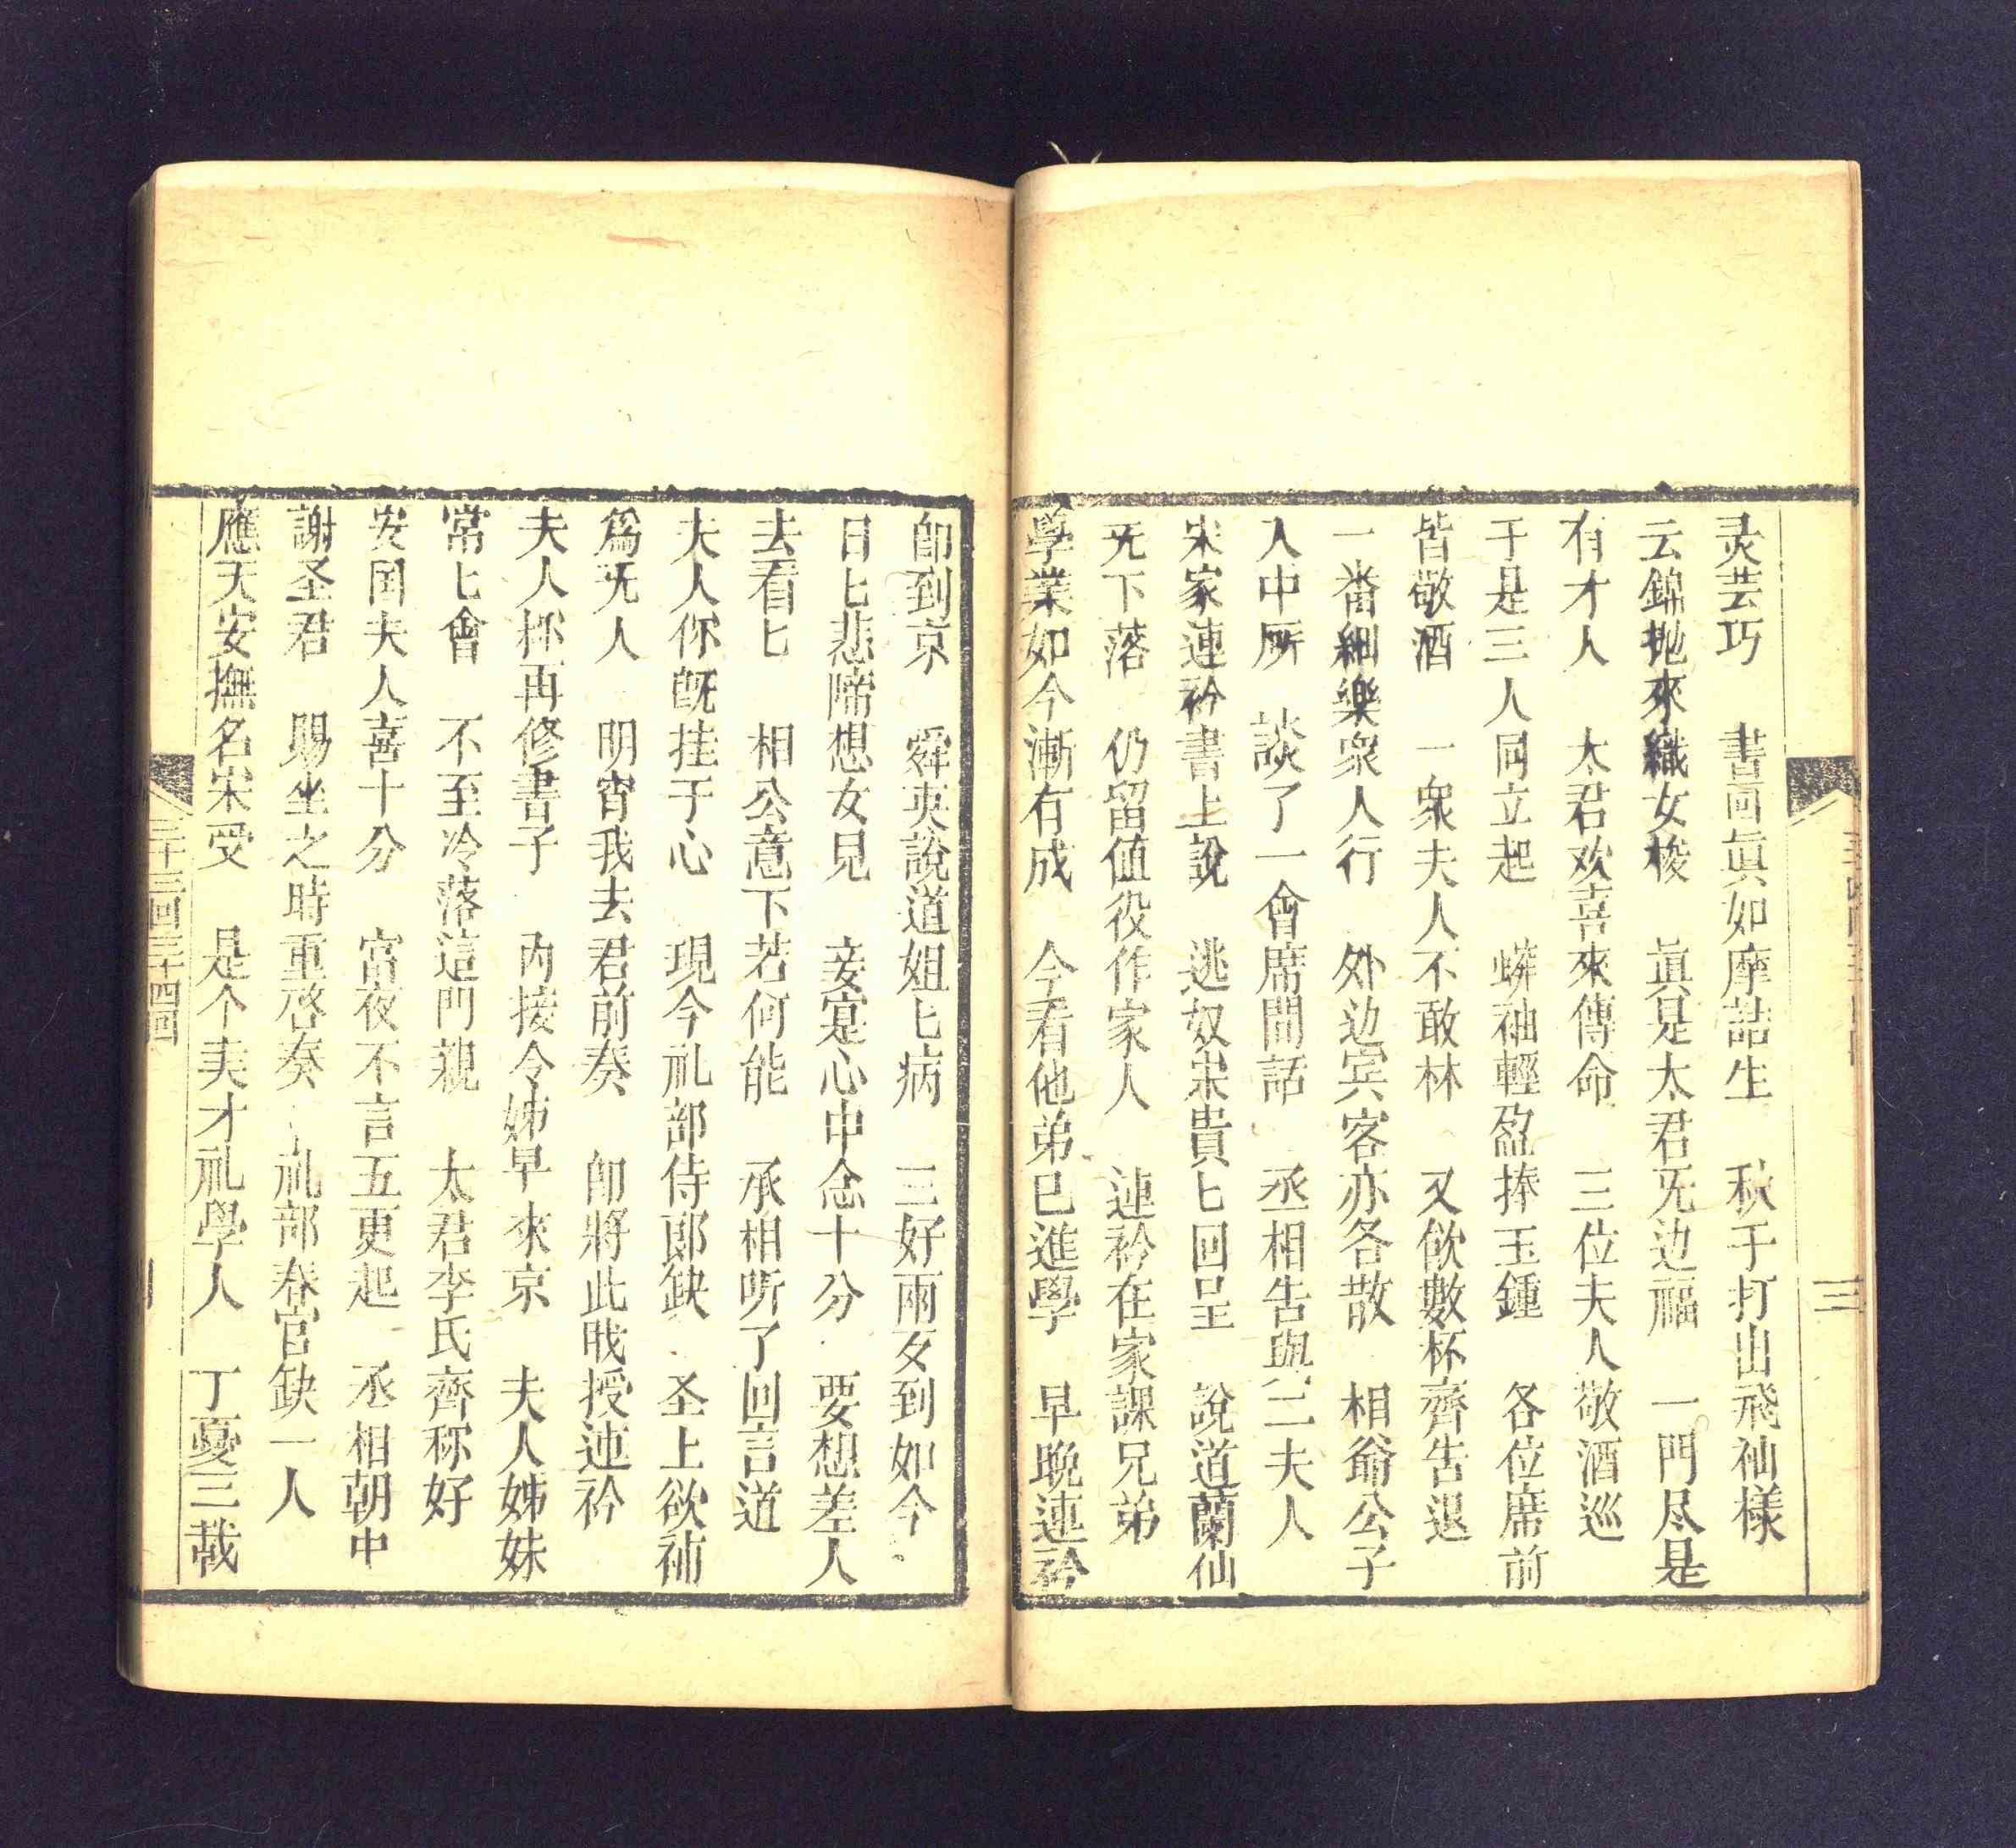 灵芸巧　書画眞如摩詰生　秋于打山飛袖樣
云錦抛來織女梭　眞是太君旡边福　一門尽是
有才人　太君欢喜來傳命　三位夫人敬酒巡
于是三人同立起　蟒袖輕盈捧玉鍾　各位席前
皆敬酒　一衆夫人不敢林　又飲數杯齊告退
一番細樂衆人行　外边宾客亦各散　相爺公子
入中㕔　談了一會席間話　丞相告與二夫人
宋家連衿書上說　逃奴宋貴匕回呈　說道蘭仙
旡下落　仍留值役作家人　連衿在家課兄弟
學業如今漸有成　今看他弟已進學　早晚連衿
即到京　舜英說道姐匕病　三好兩歹到如今
日匕悲啼想女兒　妾寔心中念十分　要想差人
去看匕　相公意下若何能　承相听了回言道
夫人你既挂于心　現今礼部侍郎缺　圣上欲補
爲旡人　明宵我去君前奏　即將此戝授連衿
夫人抔再修書子　內接令姊早來京　夫人姊妹
常匕會　不至冷落這門親　太君李氏齊称好
安囯夫人喜十分　當夜不言五更起　丞相朝中
謝圣君　賜坐之時重啓奏　礼部春官缺一人
應天安撫名宋受　是个美才礼學人　丁憂三載
二十三回二十四回
三